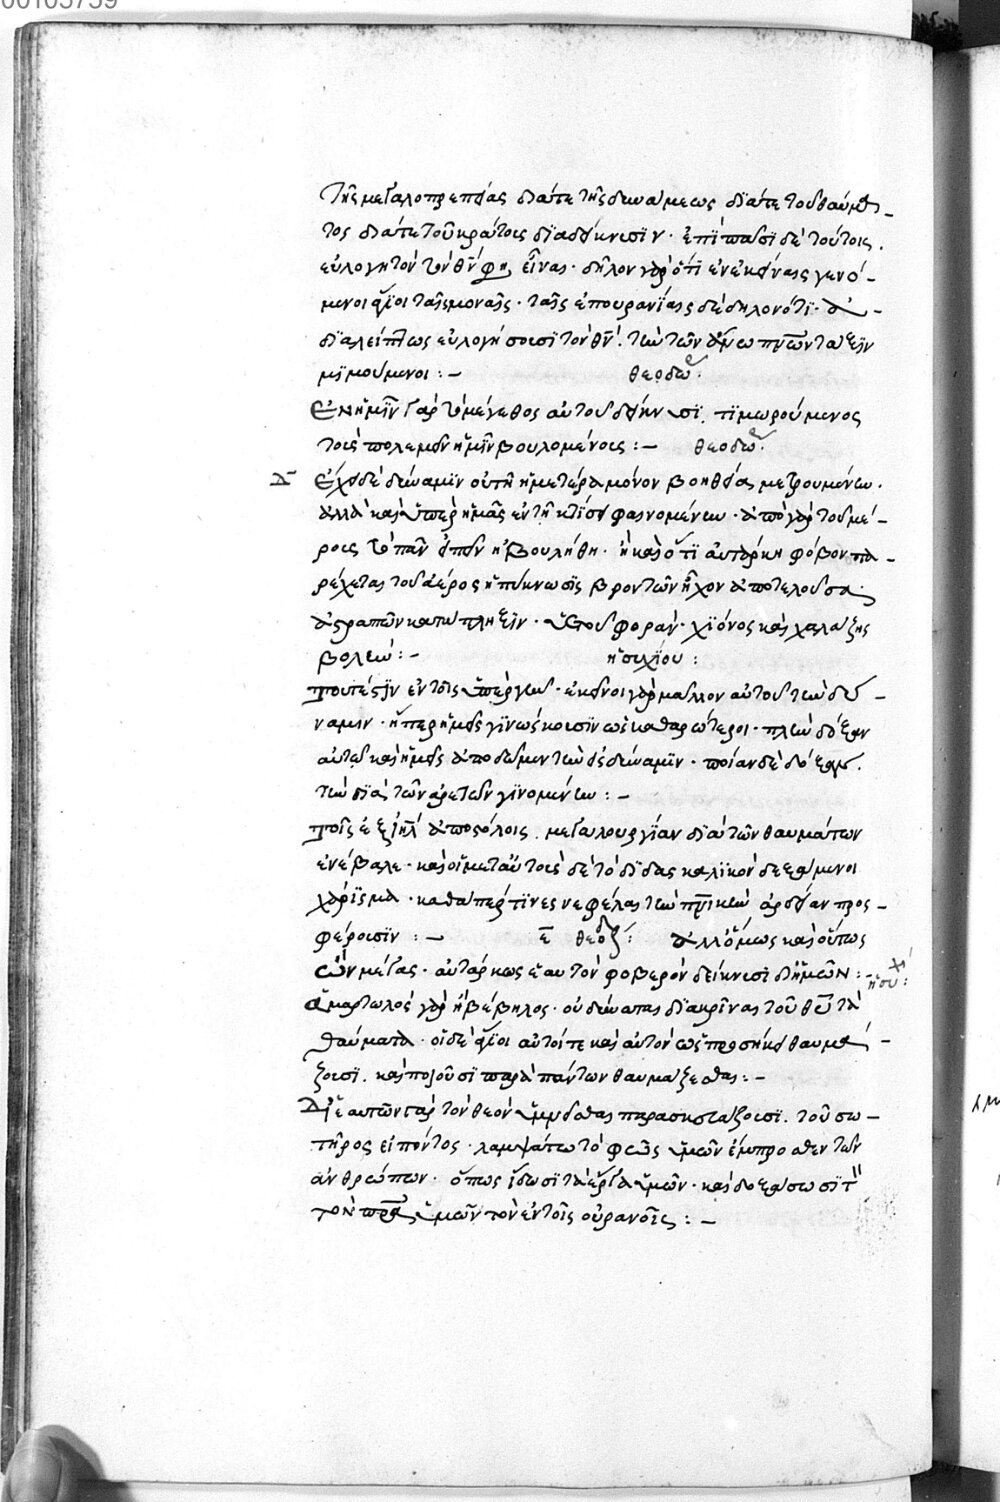 00105759
Τῆς μεγαλοπρεπείας διά τε τῆς δυνάμεως διά τε τοῦ θαύμα-
τος διά τε τοῦ κράτους διαδείκνυσιν· ἐπὶ πᾶσι δὲ τούτοις.
εὐλογητὸν τὸν θν̅ φη, εἶναι· δῆλον γὰρ ὅτι ἐν ἐκείναις γενό-
μενοι ἅγιοι ταῖς μοναῖς· ταῖς ἐπουρανίαις δὲ δηλονότι· ἀ-
διαλείπτως εὐλογήσουσι τὸν θν̅. τὴν τῶν ἄνω πνω̅ν τάξιν
μιμούμενοι :– θεοδω.
Ἐν ἡμῖν γὰρ τὸ μέγεθος αὐτοῦ δείκνυσι. τιμωρούμενος
τοὺς πολεμεῖν ἡμῖν βουλομένους :– θεοδω.
Δ Ἔχει δὲ δύναμιν οὐ τῇ ἡμετέρα μόνον βοηθεία μετρουμένην.
ἀλλὰ καὶ ὑπὲρ ἡμᾶς ἐν τῇ κτίσει φαινομένην· ἀπὸ γὰρ τοῦ μέ-
ρους τὸ πᾶν εἰπεῖν ἠβουλήθη· ἢ καὶ ὅτι αὐτάρκη φόβον πα-
ρέχεται τοῦ ἀέρος ἡ πύκνωσις βροντῶν ἦχον ἀποτελοῦσα·
ἀστραπῶν κατάπληξιν· ὑετοῦ φοράν· χιόνος καὶ χαλάζης
βολήν :– ἡσυχίου :
Τουτέστιν ἐν τοῖς ὑπέργων· ἐκεῖνοι γὰρ μᾶλλον αὐτοῦ τὴν δύ-
ναμιν· ἤπερ ἡμεῖς γινώσκουσιν ὡς καθαρώτεροι· πλὴν δόξαν
αὐτῷ καὶ ἡμεῖς ἀποδῶμεν τὴν δὲ δύναμιν· ποίαν δὲ δόξαν.
τὴν διὰ τῶν ἀρετῶν γινομένην :–
Τοῖς ἀποστόλοις. μεγαλουργίαν διὰ τῶν θαυμάτων
ἐνέβαλε· καὶ οἱ μετ' αὐτοὺς δὲ τὸ διδασκαλικὸν δεξάμενοι
χάρισμα· καθάπερ τινες νεφέλαι τὴν πνικὴν ἀρδείαν προς-
φέρουσιν :– ε̅ θεοδ : ἀλλ' ὅμως καὶ οὕτως
ὢν μέγας· αὐτάρκως ἑαυτὸν φοβερὸν δείκνυσι δι' ἡμῶν :- ἡσυχ :
Ἁμαρτωλὸς γὰρ ἢ βέβηλος· οὐ δύναται διακρῖναι τοῦ θυ̅ τὰ
θαύματα· οἱ δὲ ἅγιοι αὐτοί τε καὶ αὐτὸν ὡς προσήκει θαυμά-
ζουσι. καὶ ποιοῦσι παρὰ πάντων θαυμάζεσθαι :–
Δι' ἑαυτῶν γὰρ τὸν θεὸν ὑμνεῖσθαι παρασκευάζουσι. τοῦ σω-
τῆρος εἰπόντος· λαμψάτω τὸ φῶς ὑμῶν ἔμπροσθεν τῶν
ἀνθρώπων· ὅπως ἴδωσι τὰ ἔργα ὑμῶν· καὶ δοξάσωσι τ
τὸν πρα̅ ὑμῶν τὸν ἐν τοῖς οὐρανοῖς :–